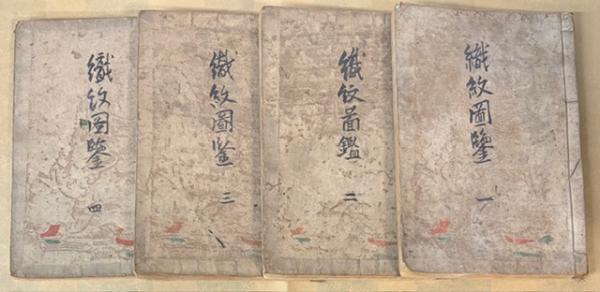 織紋圖鑒 一
織紋啚鑑 二
織紋圖鑒 三
織紋圖鑒 四